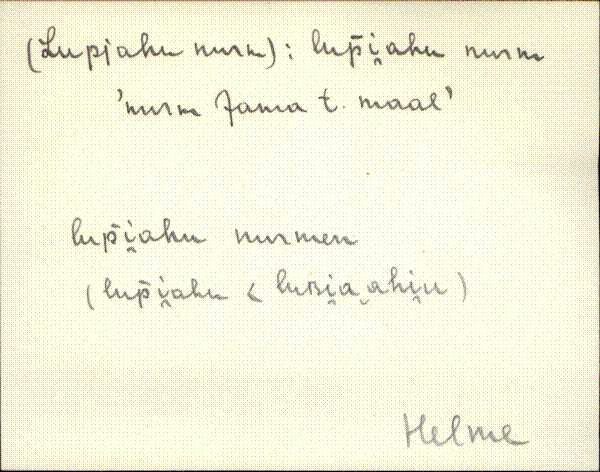 (Lupjahu nurm): lup̄i̯ahu nurm
'nurm Jama t. maal'
lup̄i̯ahu nurmen
(lup̄i̯ahu < luʙi̯a‿ahi̯u)
Helme